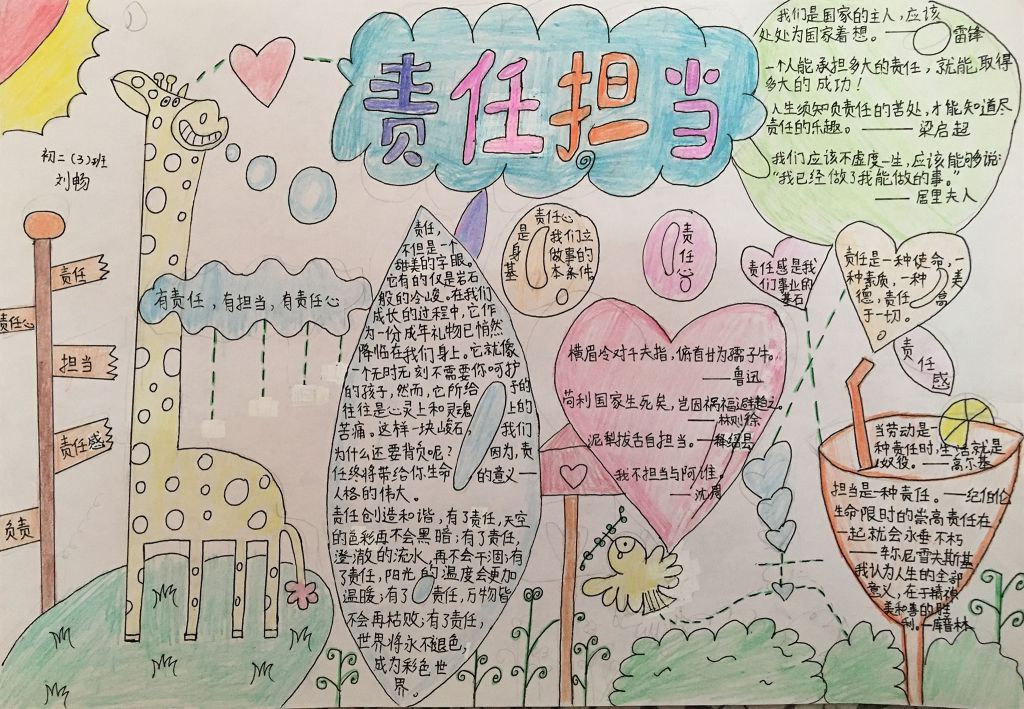 责任担当
初二(3)班
刘畅
责任
责任心
担当
责任感
负责
有责任，有担当，有责任心
责任，
不但是一个
甜美的字眼。
它有的仅是岩石
般的冷峻。在我们
成长的过程中，它作
为一份成年礼物已悄然
降临在我们身上。它就像
一个无时无刻不需要你呵护
的孩子，然而，它所给予的
往往是心灵上和灵魂上的
苦痛。这样一块峻石，我们
为什么还要背负呢？因为，责
任终将带给你生命的意义——
人格的伟大。
责任创造和谐，有了责任，天空
的色彩再不会黑暗；有了责任，
澄澈的流水，再不会干涸；有
了责任，阳光的温度会更加
温暖；有了责任，万物皆
不会再枯败；有了责任，
世界将永不褪色，
成为彩色世
界。
责任心
是我们立
身做事的
基本条件。
责任心
责任感是我
们事业的
基石
责任是一种使命，一
种素质，一种美
德，责任高
于一切。
责任感
我们是国家的主人，应该
处处为国家着想。——雷锋
一个人能承担多大的责任，就能取得
多大的成功！
人生须知负责任的苦处，才能知道尽
责任的乐趣。——梁启超
我们应该不虚度一生，应该能够说：
“我已经做了我能做的事。”
——居里夫人
横眉冷对千夫指，俯首甘为孺子牛。
——鲁迅
苟利国家生死矣，岂因祸福避趋之。
——林则徐
我不担当阿谁。
当劳动是一
种责任时，生活就是
奴役。——高尔基
担当是一种责任。——纪伯伦
生命限时的崇高责任在
一起就会永垂不朽
我认为人生的全部
意义，在于精神
美和善的胜
利。